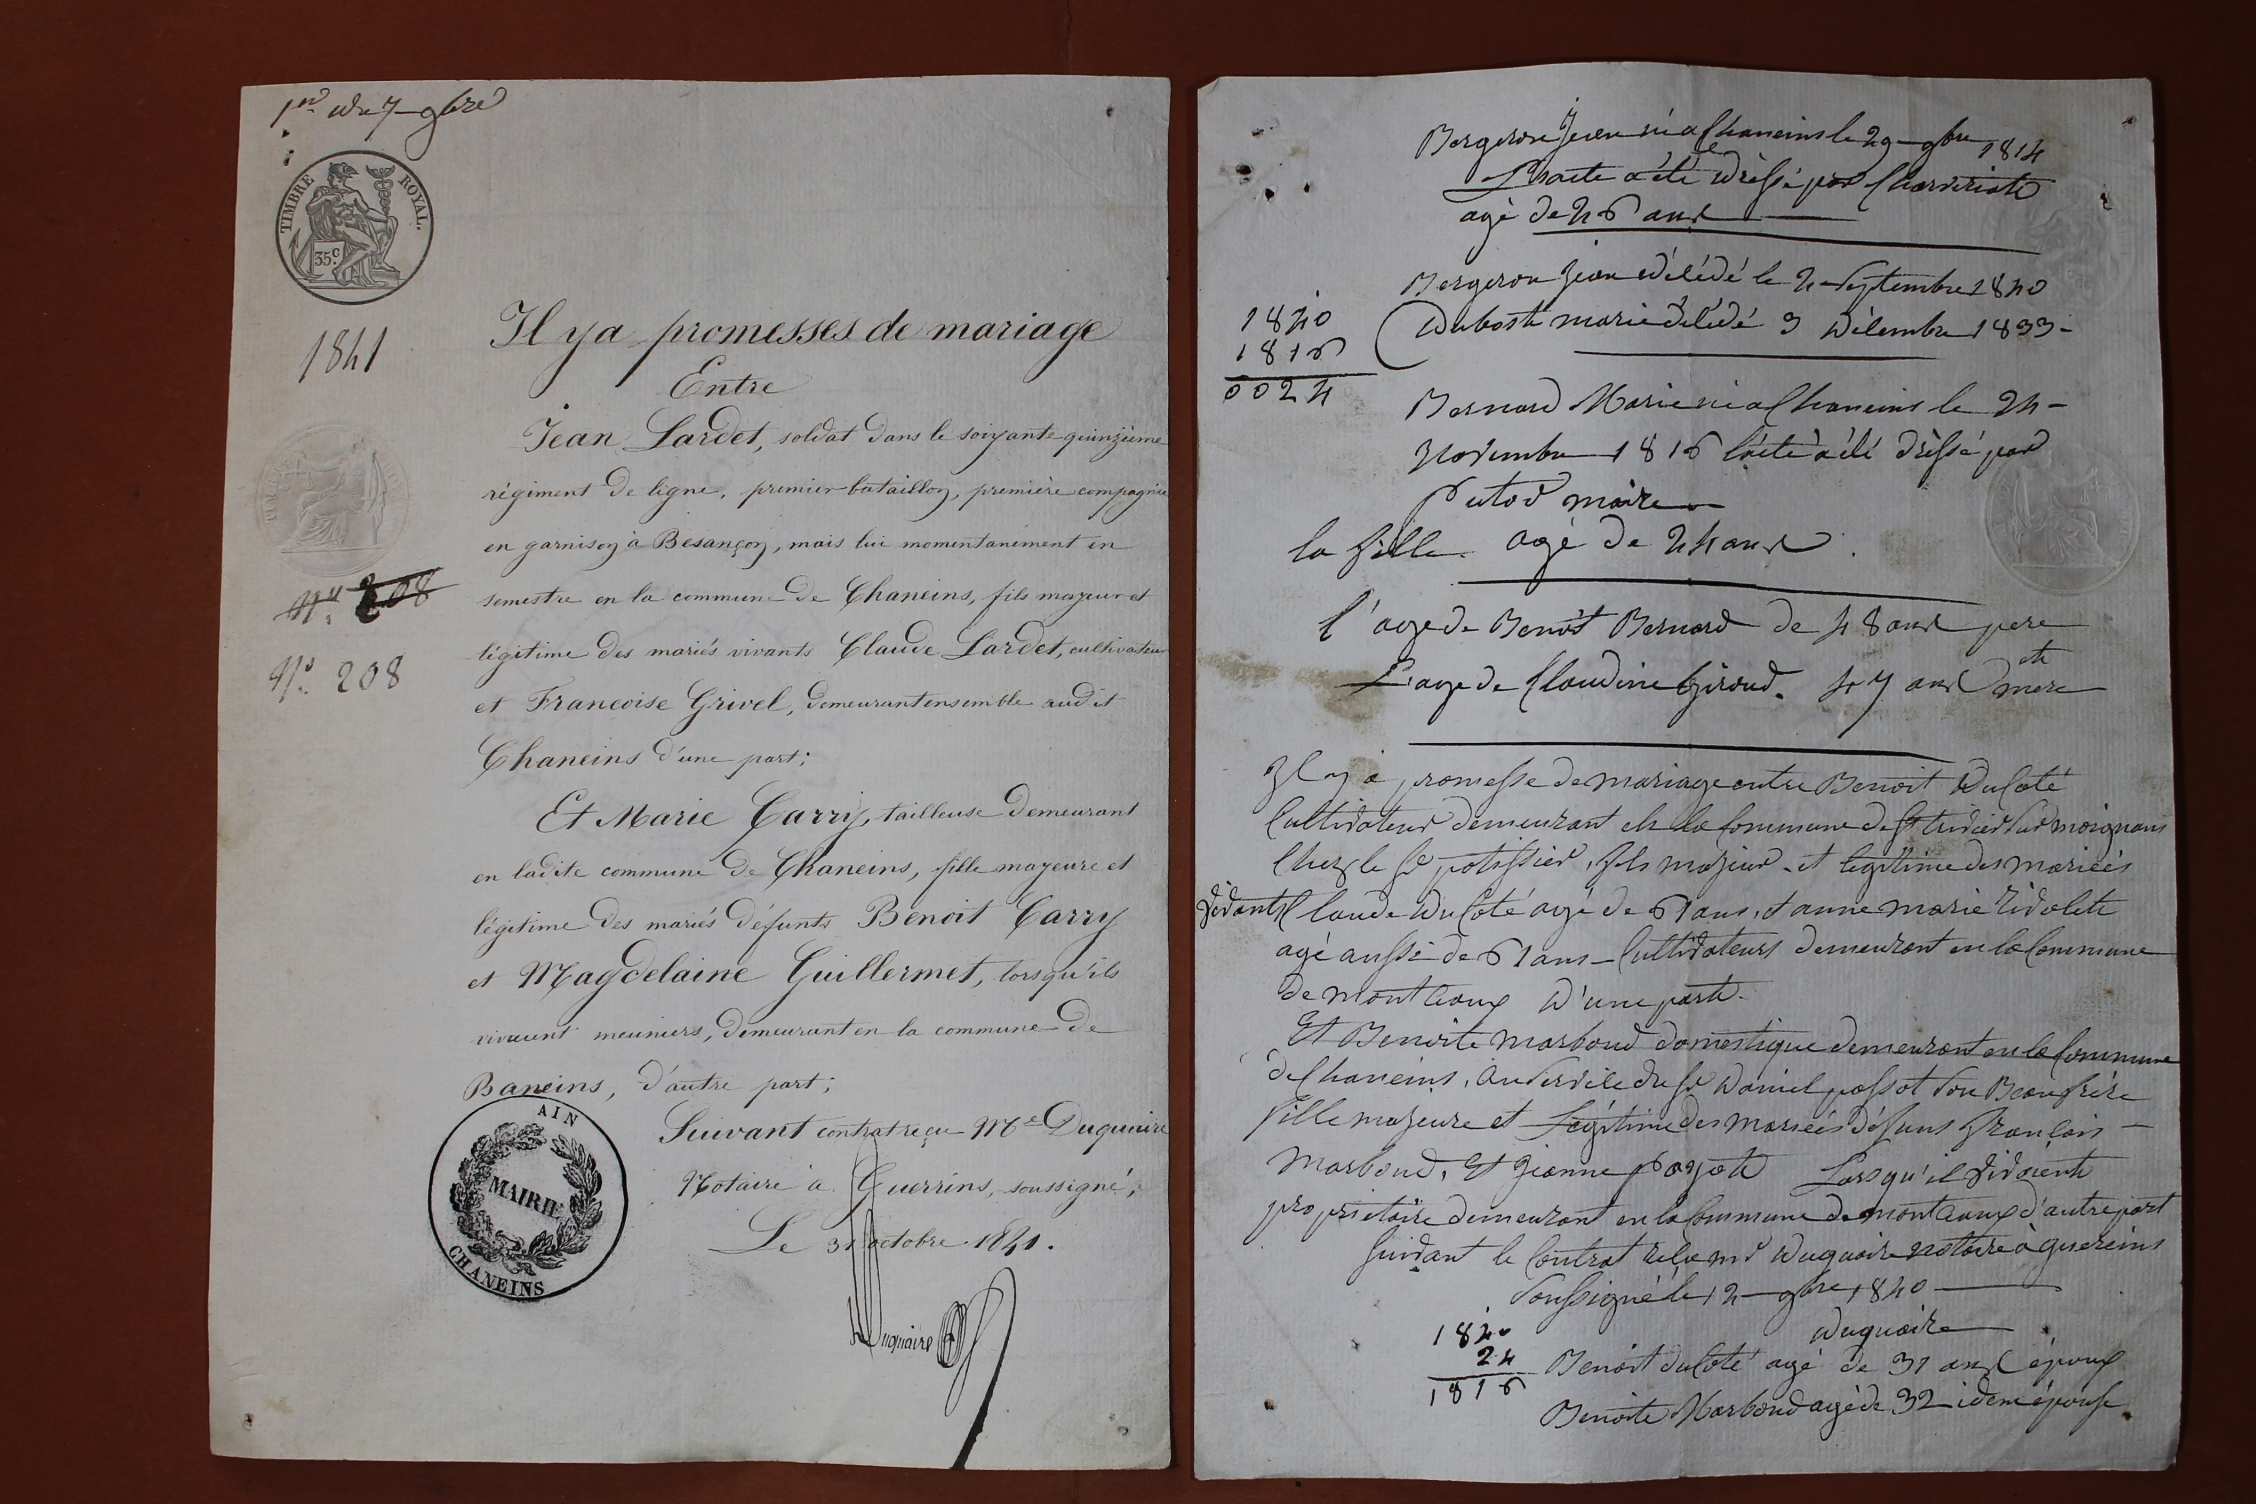 1er de 9bre
TIMBRE ROYAL.
35c
1841
No 208
No. 208
Il y a promesses de mariage
Entre
Jean Lardet, soldat dans le soixante quinzième
régiment de ligne, premier bataillon, première compagnie
en garnison à Besançon, mais lui momentanément en
semestre en la commune de Chaneins, fils majeur et
légitime des mariés vivants Claude Lardet, cultivateur
et Francoise Grivel, demeurant ensemble audit
Chaneins d'une part;
Et Marie Carry, tailleuse demeurant
en ladite commune de Chaneins, fille majeure et
légitime des mariés défunts Benoit Carry
et Magdelaine Guillermet, lorsqu'ils
vivaient meuniers, demeurant en la commune de
Baneins, d'autre part;
Suivant contrat reçu Me Duquaire
Notaire à Guerrins, soussigné,
Le 31 octobre 1841.
AIN
MAIRIE
CHANEINS
Duquaire
Bergeron Jean né a Chaneins le 29 9bre 1814
L'acte a été dréssé par
agé de 26 ans
Bergeron Jean décédé le 2 Septembre 1840
dubost marie décédé 3 décembre 1833
1840
1816
0024
Bernard Marie né a Chaneins le 24
Novembre 1816 l'acte a été dréssé par
Putod maire
la fille agé de 24 ans
l'age de Benoit Bernard de 48 ans pere
et
L'age de Claudine Giroud. 47 ans mere
Il y a promesse de mariage entre Benoit ducoté
Cultivateur demeurant en la Commune de St trivier sur moignans
Chez le Sr potissier, fils majeur et legitime des mariés
vivants Claude ducoté agé de 61 ans, et anne marie
agé aussi de 61 ans Cultivateurs demeurant en la Commune
de montceaux d'une part.
Et Benoite Marboud domestique demeurant en la Commune
de Chaneins, au service du Sr daniel passot son Beaufrère
fille majeure et Légitime des mariés défuns françois
Marboud, et Jeanne payot Lorsqu'il vivaient
proprietaire demeurant en la Commune de montceaux d'autre part
Suivant le Contrat recu me duquaire notaire à guereins
Soussigné le 12 9bre 1840
duquaire
1840
24
1816
Benoit ducoté agé de 31 ans époux
Benoite Marboud agé de 32 idem épouse